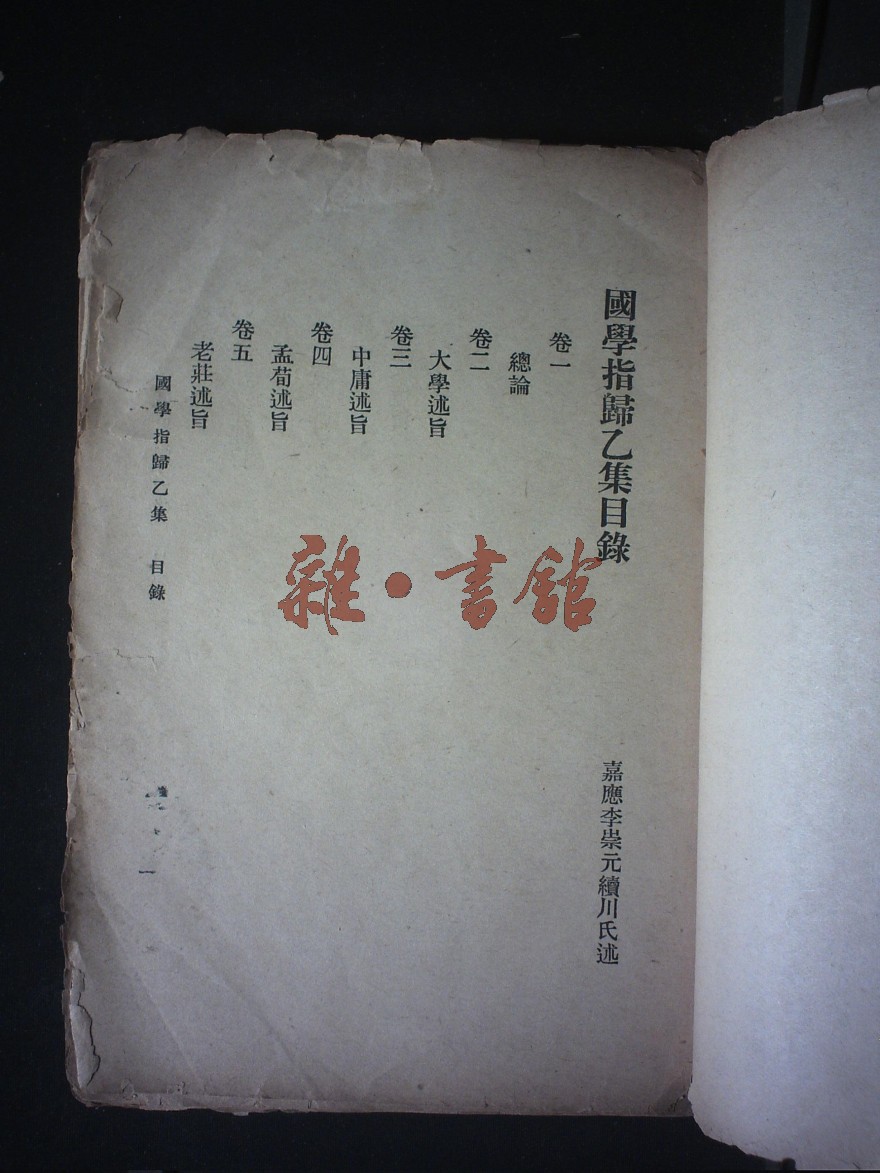 國學指歸乙集目錄
嘉應李崇元續川氏述
卷一
總論
卷二
大學述旨
卷三
中庸述旨
卷四
孟荀述旨
卷五
老莊述旨
國學指歸乙集 目錄
一
雜·書館